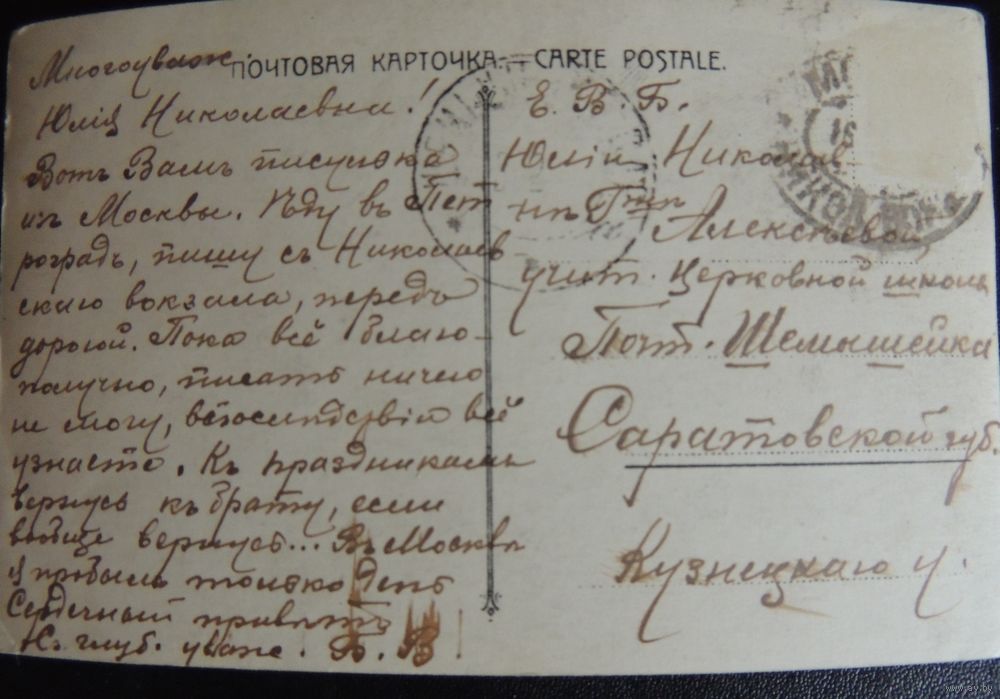 ПОЧТОВАЯ КАРТОЧКА. — CARTE POSTALE.
Многоуваж.
Юлія Николаевна!
Вотъ Вамъ писулька
изъ Москвы. Ѣду въ Пет
роградъ, пишу съ Николаев
скаго вокзала, передъ
дорогой. Пока всё благо-
получно, писать ничего
не могу, впослѣдствіи всё
узнаете. Къ праздникамъ
вернусь къ брату, если
вообще вернусь... Въ Москвѣ
я пробылъ только день
Сердечный привѣтъ
Съ глуб. уваж. Б. В
Е. В. Б.
Юліи Николаев
нѣ Г-жѣ
Алексѣевой
учит. Церковной школы
Почт. Шемышейка
Саратовской губ.
Кузнецкаго у.
www.ay.by